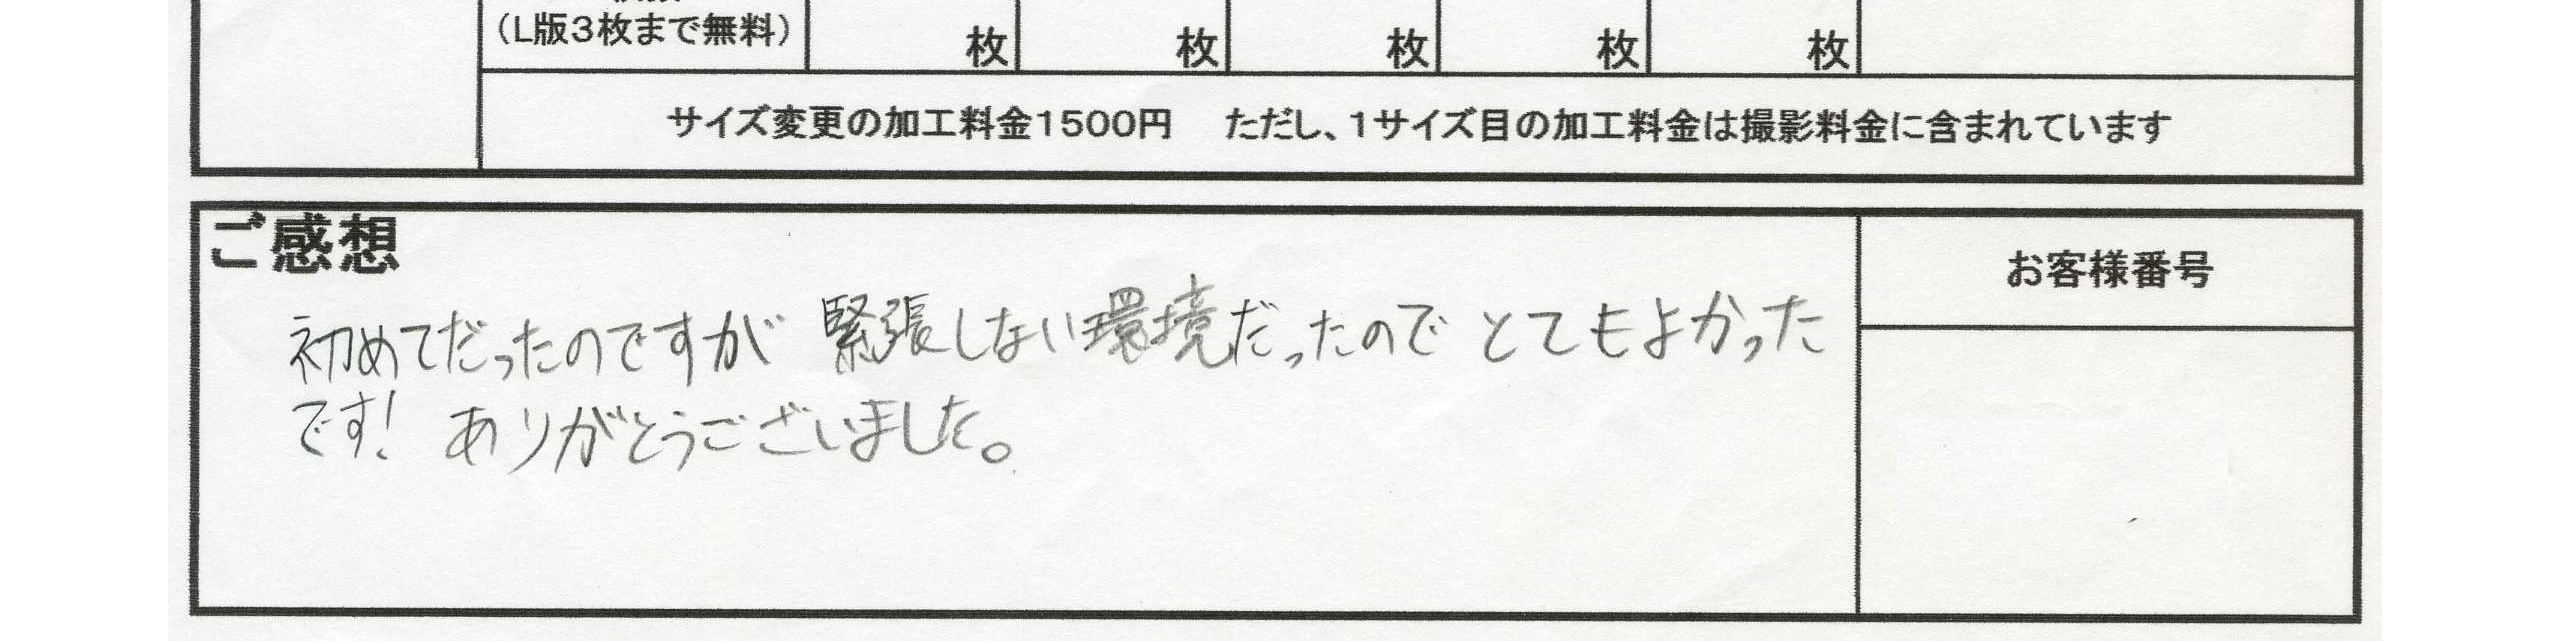 (L版3枚まで無料) 枚 枚 枚 枚 枚
サイズ変更の加工料金1500円 ただし、1サイズ目の加工料金は撮影料金に含まれています
ご感想
お客様番号
初めてだったのですが 緊張しない環境だったので とてもよかった
です! ありがとうございました。